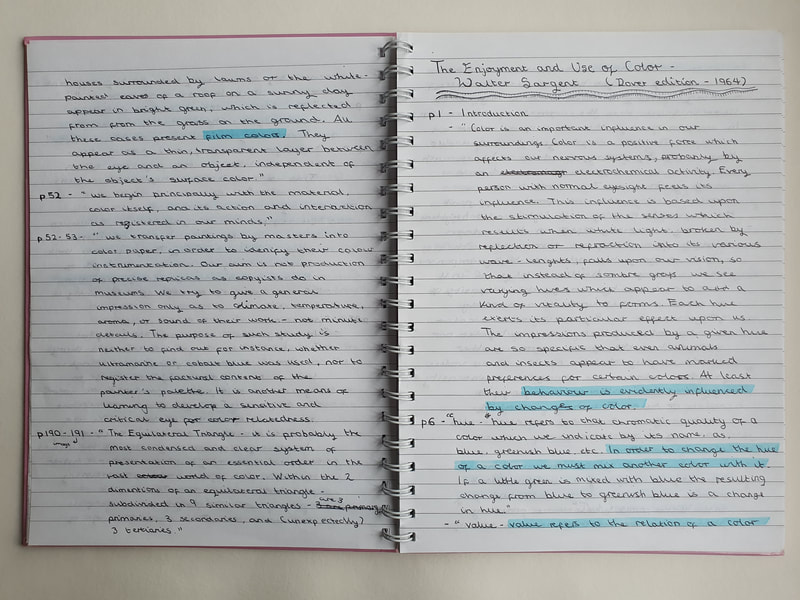 houses surrounded by lawns or the white-
painted eaves of a roof on a sunny day
appear in bright green, which is reflected
from from the grass on the ground. All
these cases present film color. They
appear as a thin, transparent layer between
the eye and an object, independent of
the object's surface color"
p52 - "we begin principally with the material,
color itself, and its action and interaction
as registered in our minds."
p52-53- "we transfer paintings by masters into
color paper, in order to identify their colour
instrumentation. Our aim is not production
of precise replicas as copyists do in
museums. We try to give a general
impression only as to climate, temperature,
aroma, or sound of their work - not minute
details. The purpose of such study is
neither to find out for instance, whether
ultramarine or cobalt blue was used, nor to
register the factural content of the
painter's palette. It is another means of
learning to develop a sensitive and
critical eye for color relatedness.
p190-191 - "The Equilateral Triangle - it is probably the
most condensed and clear system of
presentation of an essential order in the
vast world of color. Within the 2
dimentions of an equilateral triangle -
subdivided in 9 similar triangles - are 3
primaries, 3 secondaries, and (unexpectedly)
3 tertiaries."
The Enjoyment and Use of Color -
Walter Sargent (Dover edition - 1964)
p1 - Introduction
- "Color is an important influence in our
surroundings. Color is a positive force which
affects our nervous systems, probably by
an electrochemical activity. Every
person with normal eyesight feels its
influence. This influence is based upon
the stimulation of the senses which
results when white light, broken by
reflection or refraction into its various
wave-lenghts, falls upon our vision, so
that instead of sombre grays we see
varying hues which appear to add a
kind of vitality to forms. Each hue
exerts its particular effect upon us.
The impressions produced by a given hue
are so specific that even animals
and insects appear to have marked
preferences for certain colors. At least
their behaviour is evidently influenced
by changes of color.
p6 - "hue - "hue refers to that chromatic quality of a
color which we indicate by its name, as
blue, greenish blue, etc. In order to change the hue
of a color we must mix another color with it.
If a little green is mixed with blue the resulting
change from blue to greenish blue is a change
in hue."
- "value - value refers to the relation of a color